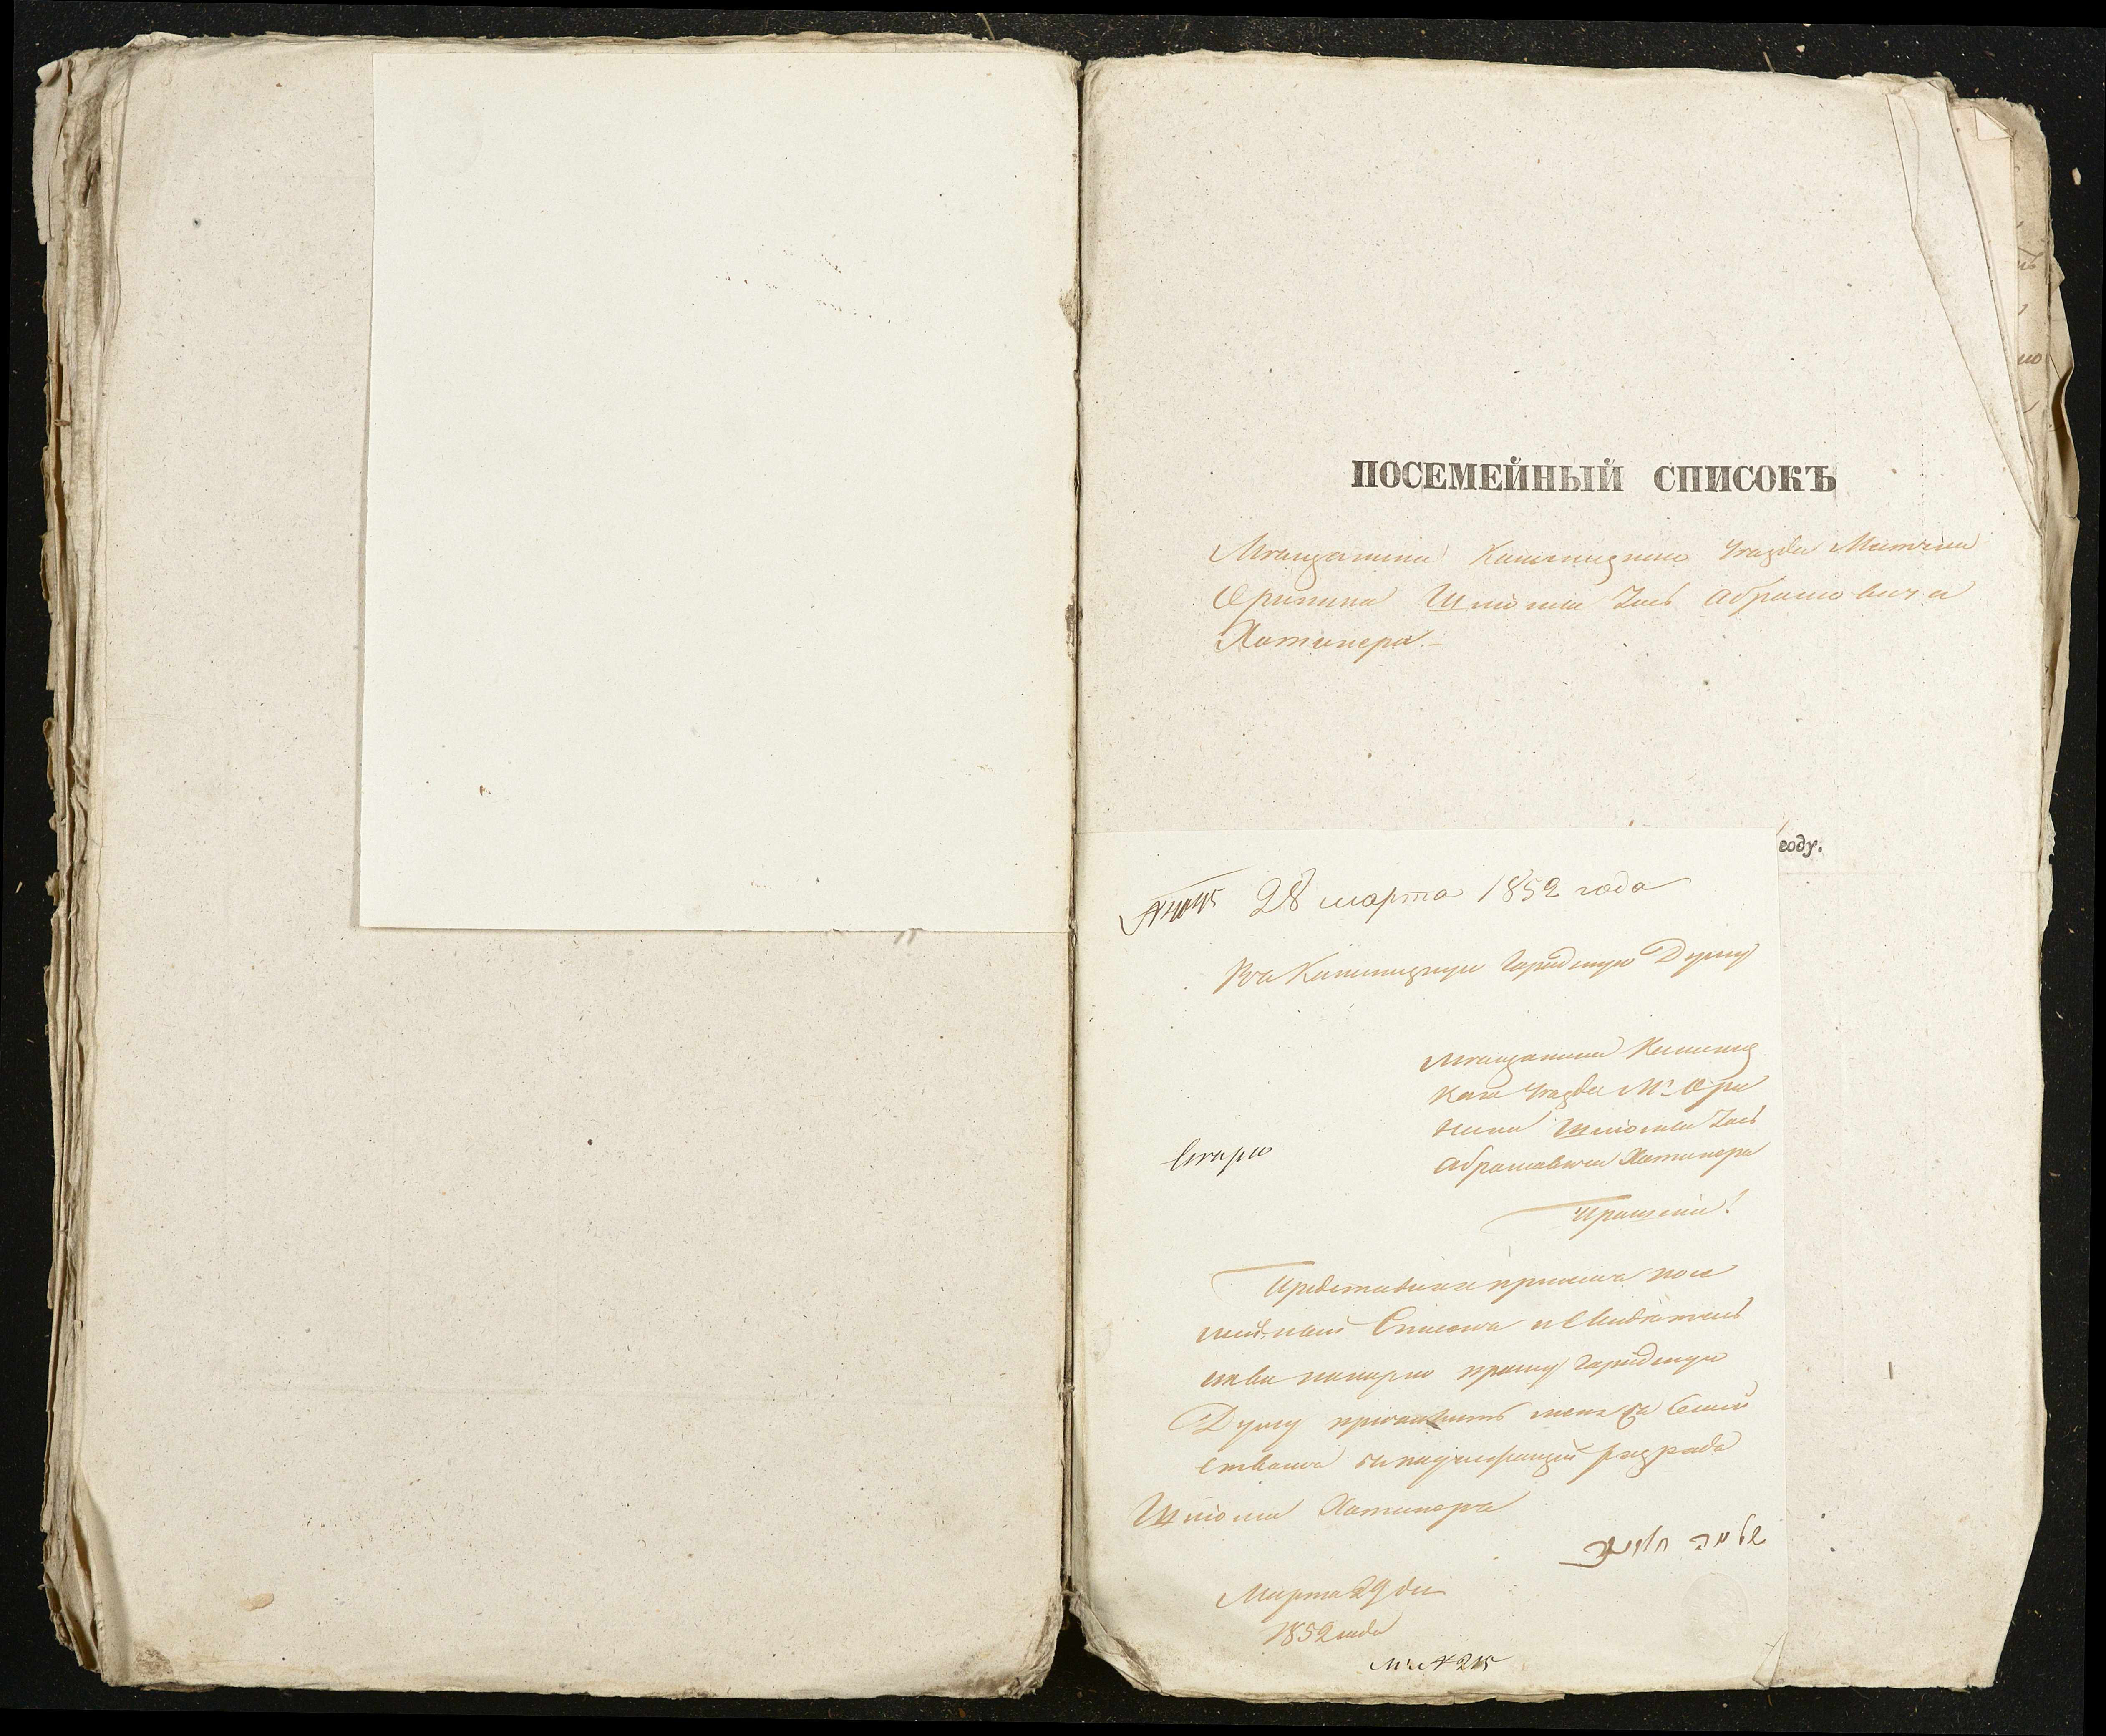 ПОСЕМЕЙНЫЙ СПИСОКЪ
Мѣщанина Каменецкаго Уѣзда Мѣстечка
Оринина Шліома Абрамовича
Хотинера
году.
28 марта 1852 года
Въ Каменецкую Городскую Думу
Мѣщанина Каменец
каго Уѣзда М. Ори
нина Шліома
Абрамовича Хотинера
Прошеніе!
Представляя при семъ посе
мейный Списокъ и Свидѣтель
ства прошу Городскую
Думу меня съ Семей
ствомъ разряда
Шліома Хотинеръ
שלמה
Марта 29 дня
1852 года
№ 215